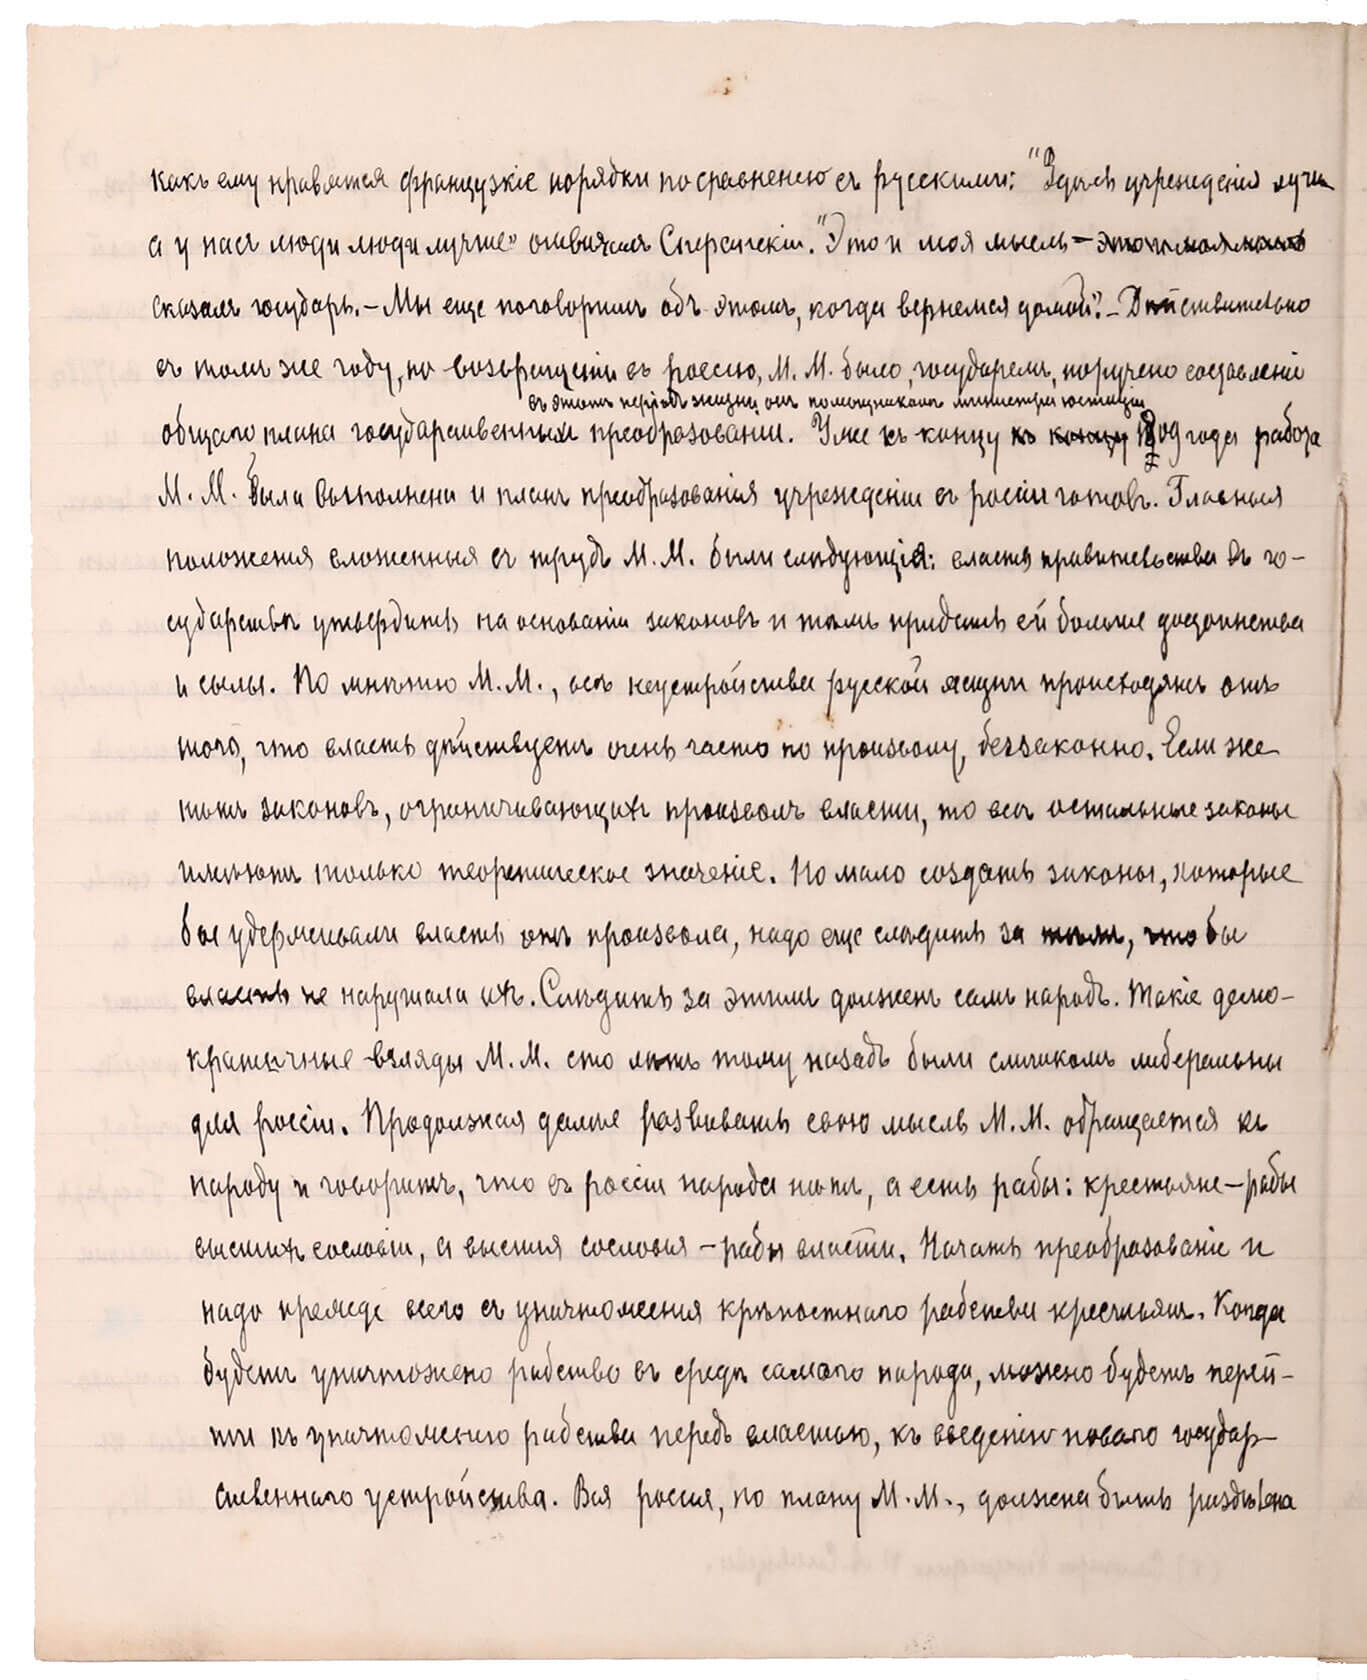 какъ ему нравятся французкіе порядки по сравненію съ русскими: "Здѣсь учрежденія лучше
а у насъ люди люди лучше" отвѣчалъ Сперанскій. "Это и моя мысль – это и моя мысль
сказалъ государь. – Мы еще поговоримъ объ этомъ, когда вернемся домой". – Дѣйствительно
въ томъ же году, по возвращеніи въ россію, М. М. было, государемъ, поручено составленіе
въ этотъ періодъ жизни онъ помощникомъ министра юстиціи
общаго плана государственныхъ преобразованій. Уже къ концу къ концу 1809 года работа
М. М. была выполнена и планъ преобразованія учрежденій въ росіи готовъ. Главныя
положенія вложенныя въ трудъ М. М. были слѣдующія: власть правительства въ го-
сударствѣ утвердить на основаніи законовъ и тѣмъ придать ей больше достоинства
и силы. По мнѣнію М. М., всѣ неустройства русской жизни происходятъ отъ
того, что власть дѣйствуетъ очень часто по произволу, беззаконно. Если же
нѣтъ законовъ, ограничивающихъ произволъ власти, то всѣ остальные законы
имѣютъ только теоретическое значеніе. Но мало создать законы, которые
бы удерживали власть отъ произвола, надо еще слѣдить за тѣмъ, чтобы
власть не нарушала ихъ. Слѣдить за этимъ долженъ самъ народъ. Такіе демо-
кратичные взгляды М. М. сто лѣтъ тому назадъ были слишкомъ либеральны
для россіи. Продолжая дальше развивать свою мысль М. М. обращается къ
народу и говоритъ, что въ россіи народа нѣтъ, а есть рабы: крестьяне – рабы
высшихъ сословій, а высшія сословія – рабы власти. Начать преобразованіе и
надо прежде всего съ уничтоженія крѣпостнаго рабства крестьянъ. Когда
будетъ уничтожено рабство въ средѣ самого народа, можно будетъ перей-
ти къ уничтоженію рабства передъ властью, къ введенію новаго государ-
ственнаго устройства. Вся россия, по плану М. М., должна быть раздѣлена